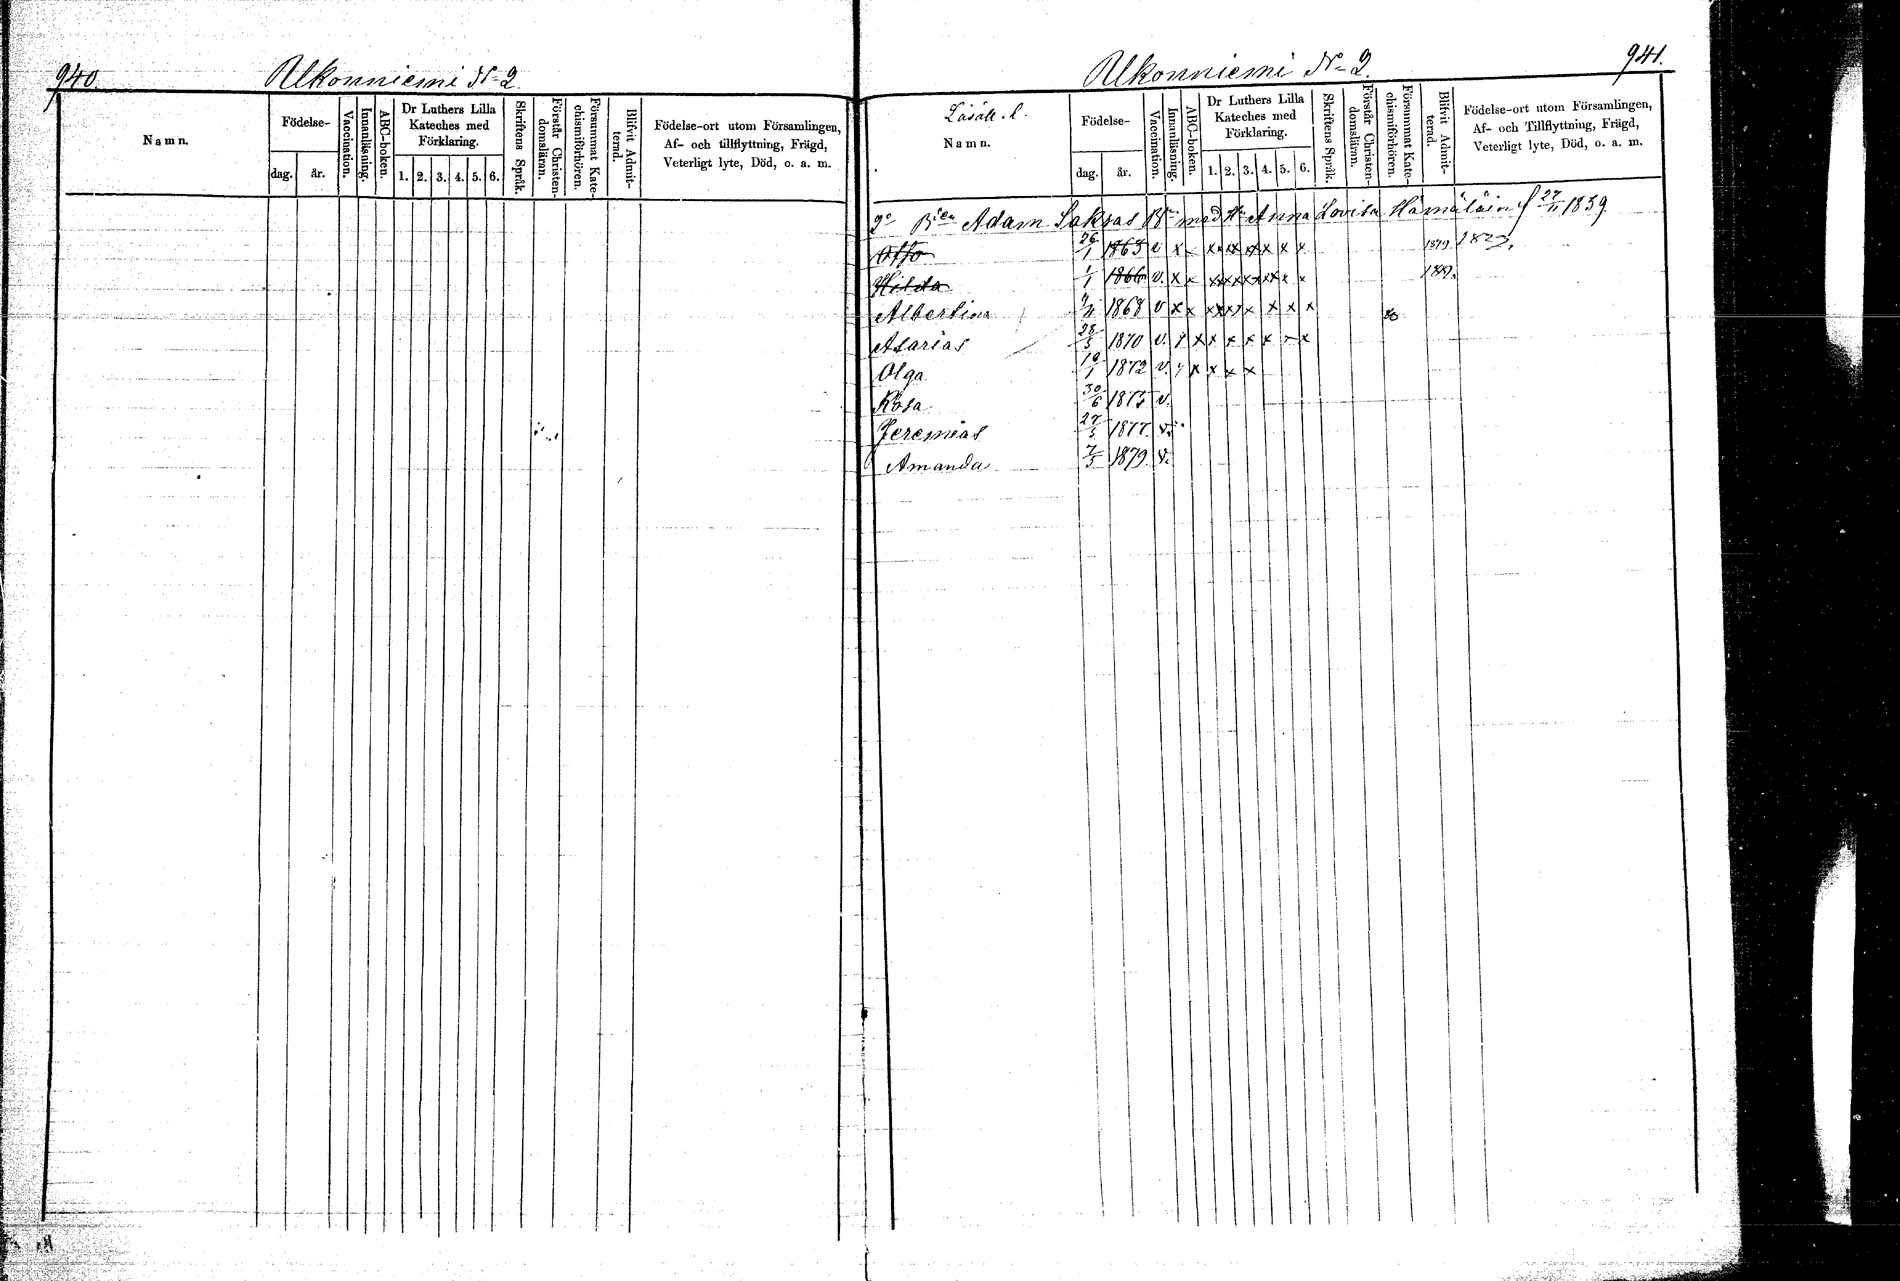 940.
Ulkonniemi No 2
Namn.
Födelse-
dag.
år.
Vaccination.
Innanläsning.
ABC-boken.
Dr Luthers Lilla
Kateches med
Förklaring.
1. 2. 3. 4. 5. 6.
Skriftens Språk.
Förstår Christen-
domsläran.
Försummat Kate-
chismiförhören.
Blifvit Admit-
terad.
Födelse-ort utom Församlingen,
Af- och tillflyttning, Frägd,
Veterligt lyte, Död, o. a. m.
Ulkonniemi No 2.
941.
Namn.
Födelse-
dag.
år.
Vaccination.
Innanläsning.
ABC-boken.
Dr Luthers Lilla
Kateches med
Förklaring.
1. 2. 3. 4. 5. 6.
Skriftens Språk.
Förstår Christen-
domsläran.
Försummat Kate-
chismiförhören.
Blifvit Admit-
terad.
Födelse-ort utom Församlingen,
Af- och Tillflyttning, Frägd,
Veterligt lyte, Död, o. a. m.
Adam Saksas med Anna Lovisa Hämäläin f 27/11 1839.
Otto 26/1 1863 v x x x x x x x x x 1879
Hilda 1/1 1866 v. x x x x x x x x x x
Albertina 1868 v x x x x x x x x x
Asarias 28/5 1870 v. x x x x x x - x
Olga 10/1 1872 v. x x x x x
Rosa 30/6 1875 v.
Jeremias 27/5 1877. v.
Amanda 7/5 1879. v.